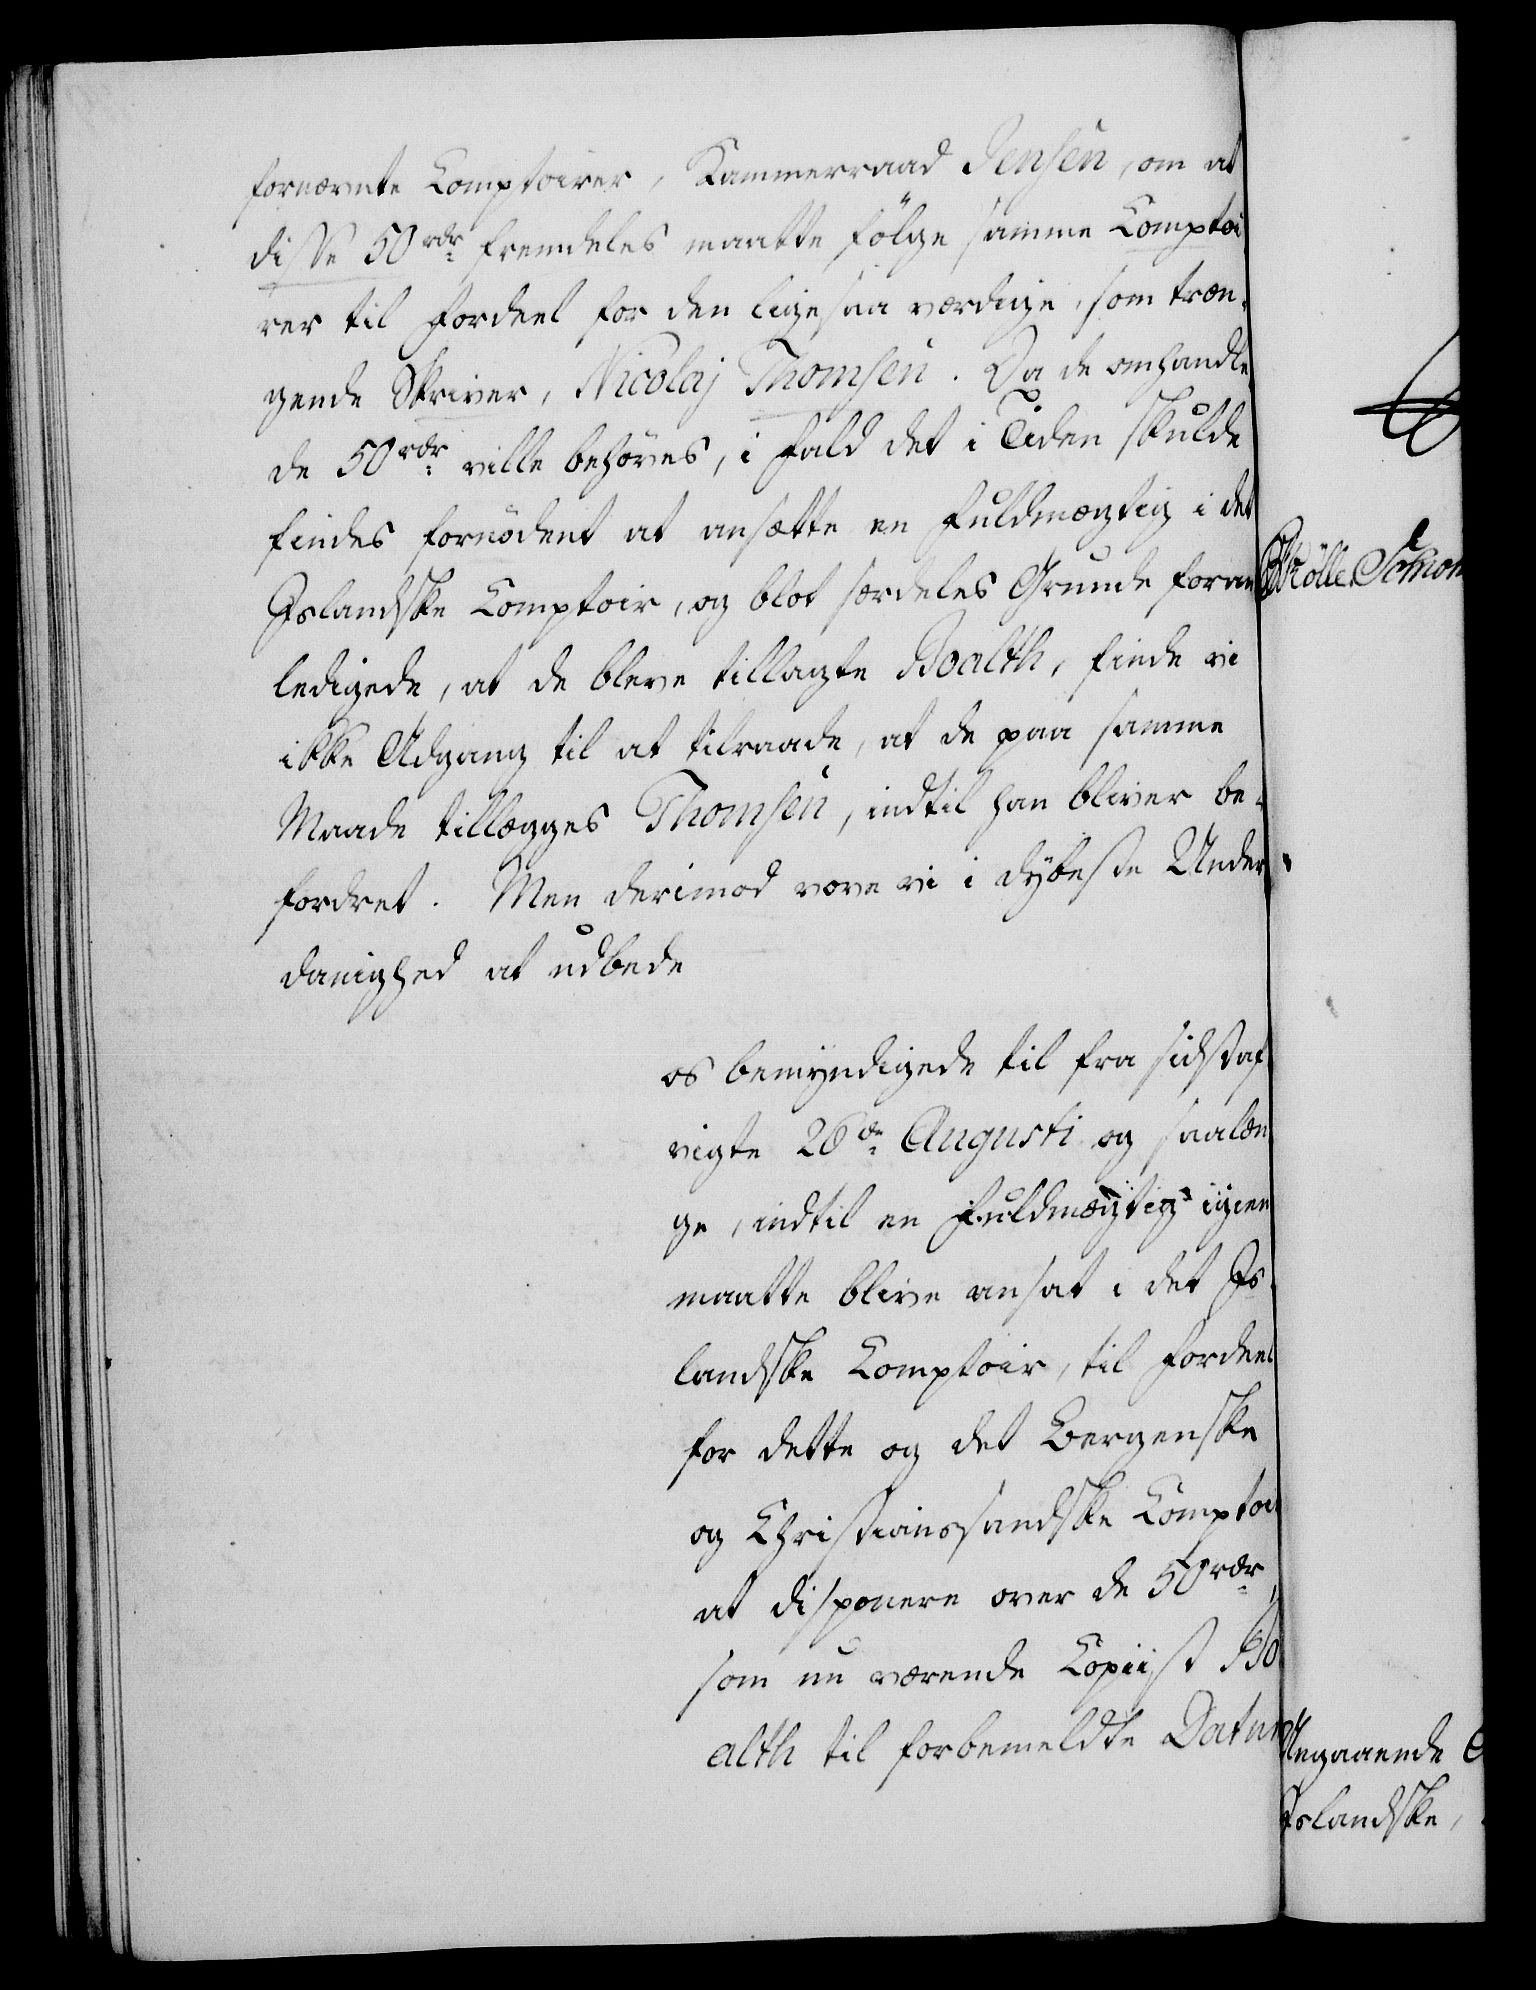 fornævnte Comptoirer, Kammerraad Jensen, om at
disse 50 rdr fremdeles maatte følge samme Comptoi
rer til Fordeel for den ligesaa værdige, som træn-
gende Skriver, Nicolaj Thomsen. Da de omhandle
de 50 rdr ville behøves, i Fald det i Tiden skulde
findes fornødent at ansætte en Fuldmægtig i det
Islandske Comptoir, og blot særdeles Grunde foran
ledigede, at de bleve tillagte Boalth, finde vi
ikke Adgang til at tilraade, at de paa samme
Maade tillægges Thomsen, indtil han bliver be-
fordret. Men derimod vove vi i dybeste Under
danighed at udbede
os bemyndigede til fra sidstaf
vigte 26de Augusti og saalæn
ge, indtil en Fuldmægtig igien
maatte blive ansat i det Is-
landske Comptoir, til Fordeel
for dette og det Bergenske
og Christianssandske Comptoir
at disponere over de 50 rdr,
som nu værende Copiist Bo
alth til forbemeldte Datum
Angaaende
Islandske,